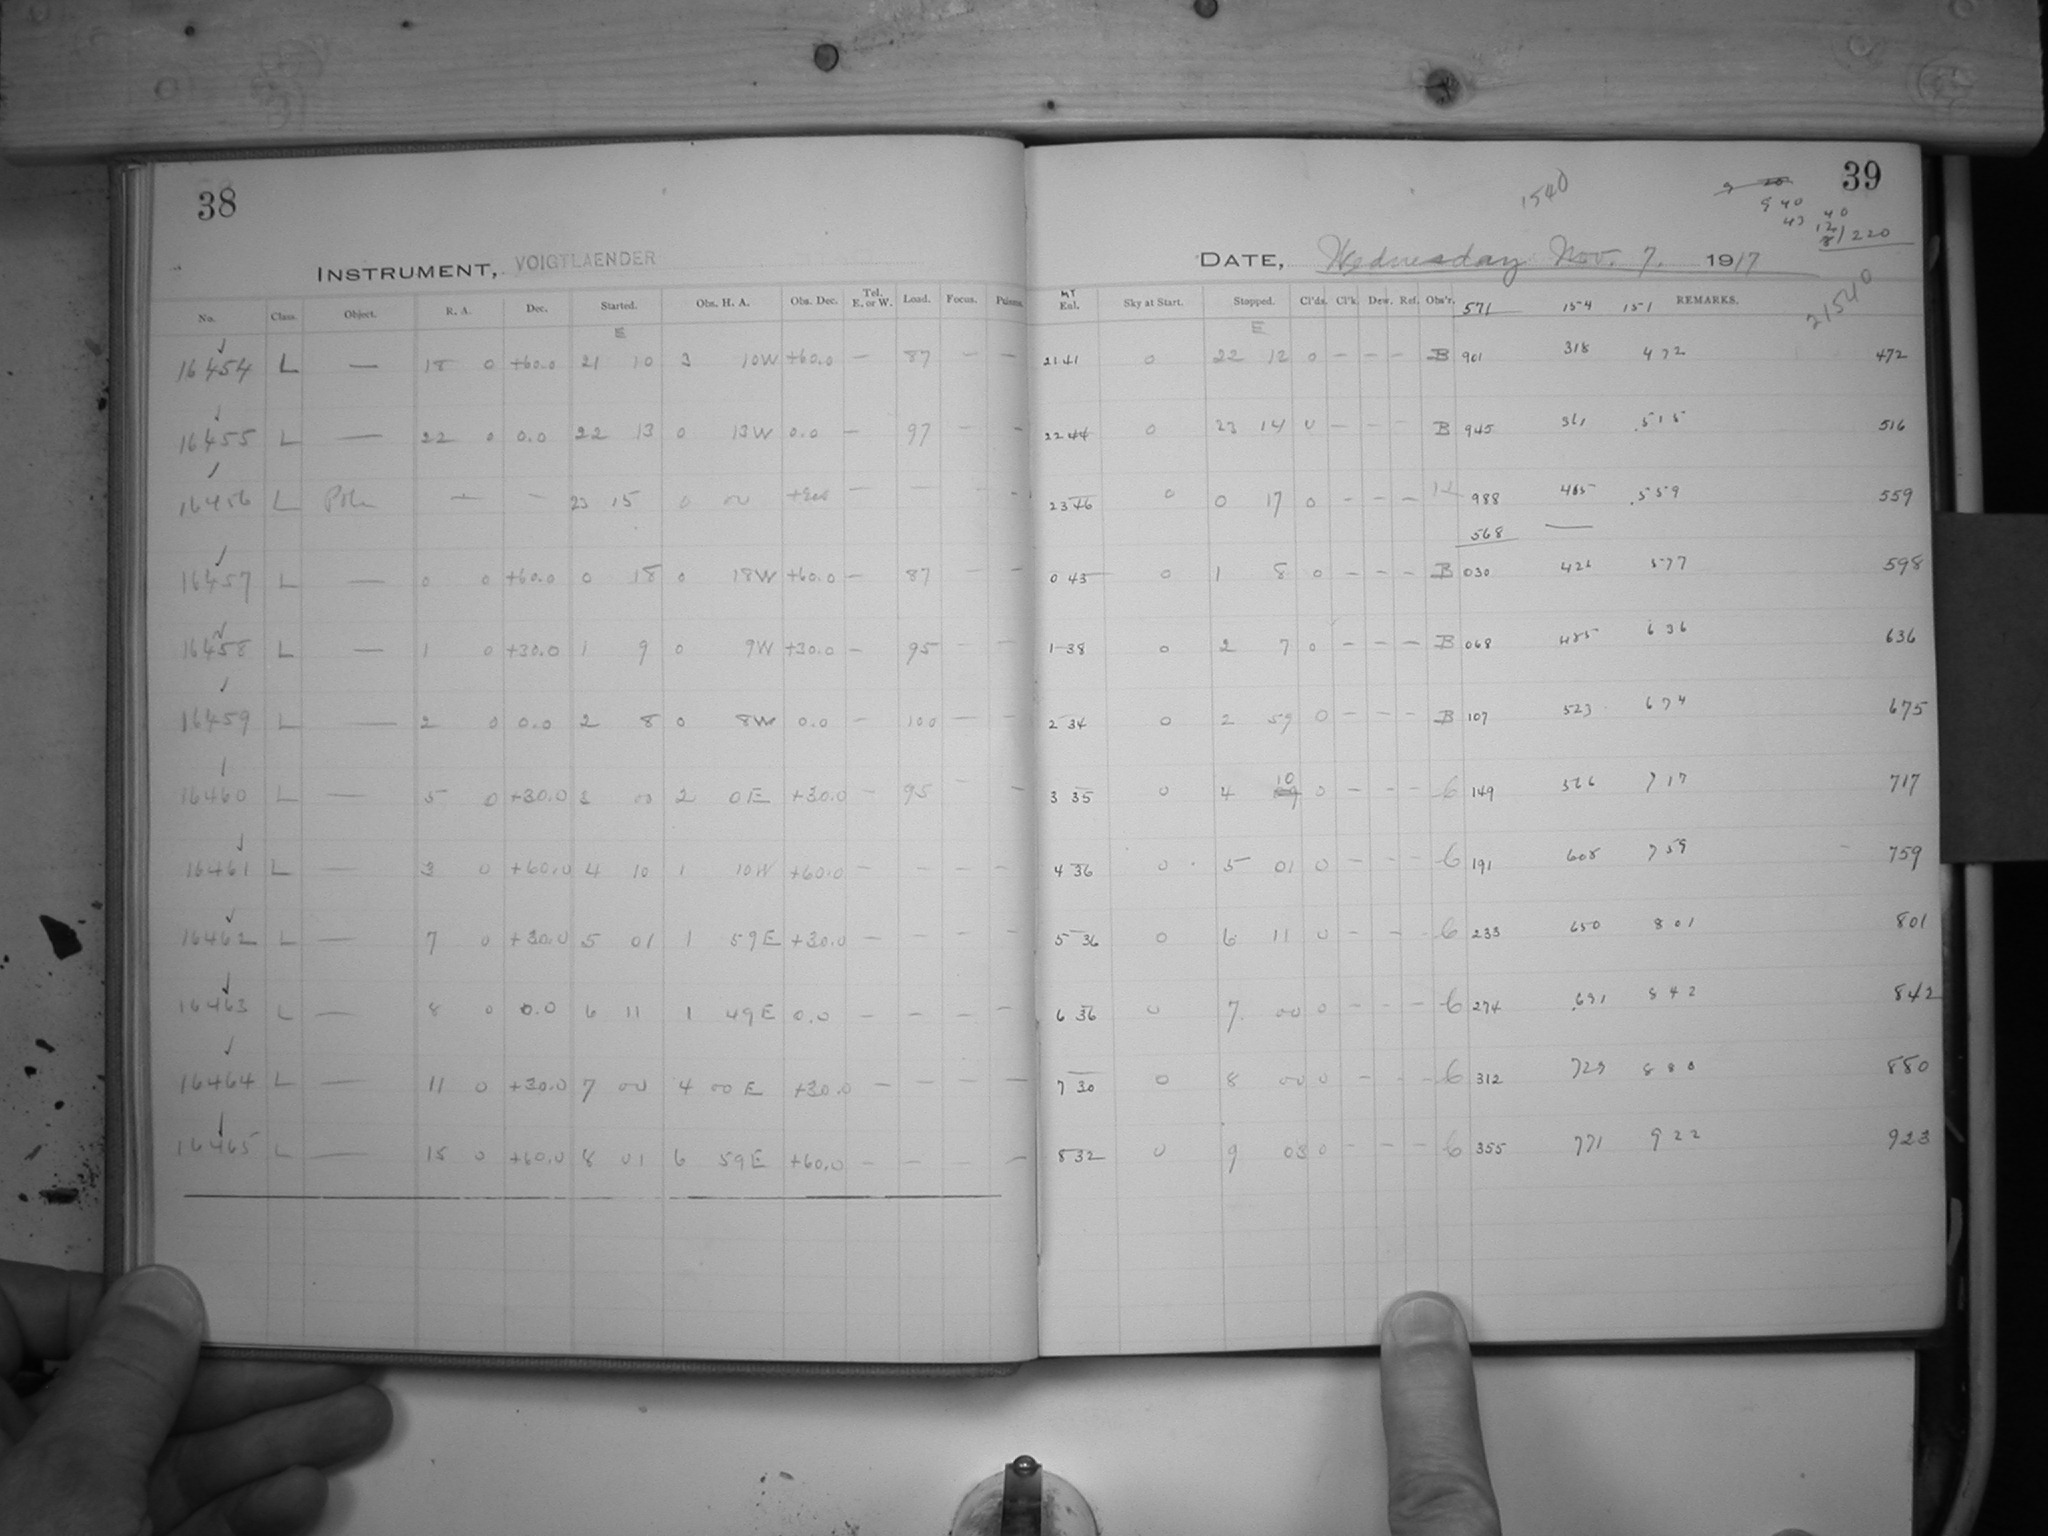 38
INSTRUMENT, VOIGTLAENDER
No. Class. Object. R. A. Dec. Started. Obs. H. A. Obs. Dec. Tel. E. or W. Load. Focus.
E
16454 L — 18 0 +60.0 21 10 3 10W +60.0 — 87 — —
16455 L — 22 0 0.0 22 13 0 13W 0.0 — 97 — —
16456 L Pole — — 23 15 0 00 — — — —
16457 L — 0 0 +60.0 0 18 0 18W +60.0 — 87 — —
16458 L — 1 0 +30.0 1 9 0 9W +30.0 — 95 — —
16459 L — 2 0 0.0 2 8 0 8W 0.0 — 100 — —
16460 L — 5 0 +30.0 3 00 2 0E +30.0 — 95 — —
16461 L — 3 0 +60.0 4 10 1 10W +60.0 — — — —
16462 L — 7 0 +30.0 5 01 1 59E +30.0 — — — —
16463 L — 8 0 0.0 6 11 1 49E 0.0 — — — —
16464 L — 11 0 +30.0 7 00 4 00E +30.0 — — — —
16465 L — 15 0 +60.0 8 01 6 59E +60.0 — — — —
39
1540
9 40
43 40
12
8/220
DATE, Wednesday Nov. 7. 1917
21540
MT
Enl. Sky at Start. Stopped. Cl'ds. Cl'k. Dew. Ref. Obs'r. 571 154 151 REMARKS.
E
21 41 0 22 12 0 — — — B 901 318 472 472
22 44 0 23 14 0 — — — B 945 361 .515 516
23 46 0 0 17 0 — — — 988 405 .559 559
568 —
0 43 0 1 8 0 — — — B 030 577 598
1 38 0 2 7 0 — — — B 068 485 636 636
2 34 0 2 59 0 — — — B 107 523 674 675
3 35 0 4 10 0 — — — 6 149 566 717 717
4 36 0 5 01 0 — — — 6 191 608 759 759
5 36 0 6 11 0 — — — 6 233 650 801 801
6 36 0 7 00 0 — — — 6 274 .691 842 842
7 30 0 8 00 0 — — — 6 312 729 880 880
8 32 0 9 03 0 — — — 6 355 771 922 923